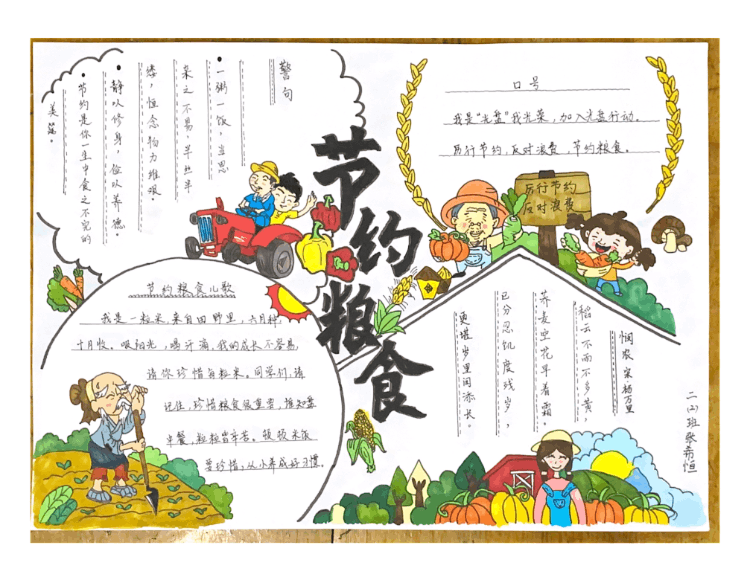 节约粮食
警句
·一粥一饭,当思
来之不易,半丝半
缕,恒念物力维艰。
·静以修身,俭以养德。
·节约是你一生中食之不完的
美筵。
口号
我是“光盘”我光荣,加入光盘行动。
厉行节约,反对浪费,节约粮食。
厉行节约
反对浪费
节约粮食儿歌
我是一粒米,来自田野里,六月种
十月收。吸阳光,喝汗滴,我的成长不容易,
请你珍惜每粒米。同学们,请
记住,珍惜粮食很重要,谁知盘
中餐,粒粒皆辛苦。顿顿米饭
要珍惜,从小养成好习惯。
悯农 宋 杨万里
稻云不雨不多黄,
荞麦空花早着霜。
已分忍饥度残岁,
更堪岁里闰添长。
二(2)班 张希恒